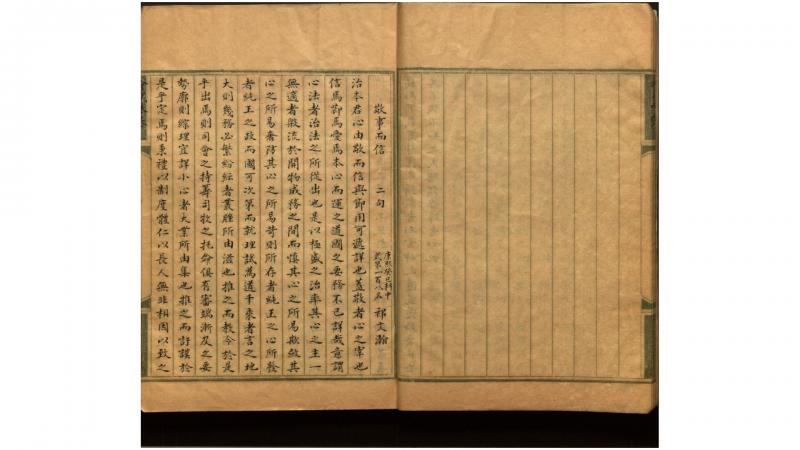 敬事而信 二句 康熙癸巳科中式第一百八名 祁文瀚
治本君心由敬而信與節用可遞詳也蓋敬者心之宰也
信焉節焉愛焉本心而運之道國之要務不已詳哉意謂
心法者治法之所從出也是以極盛之治率其心之主一
無適者散流於開物成務之間而慎其心之所易欺斂其
心之所易奢防其心之所易苛則所存者純王之心所發
者純王之政而國可次第而就理試為道千乘者言之地
大則幾務必繁紛紜者叢脞所由滋也推之而教令於是
乎出焉則司會之持籌司牧之托命俱有審端漸及之要
勢廓則綜理宜詳小心者大業所由集也推之而訏謨於
是乎定焉則秉禮以制度體仁以長人無非相因以致之